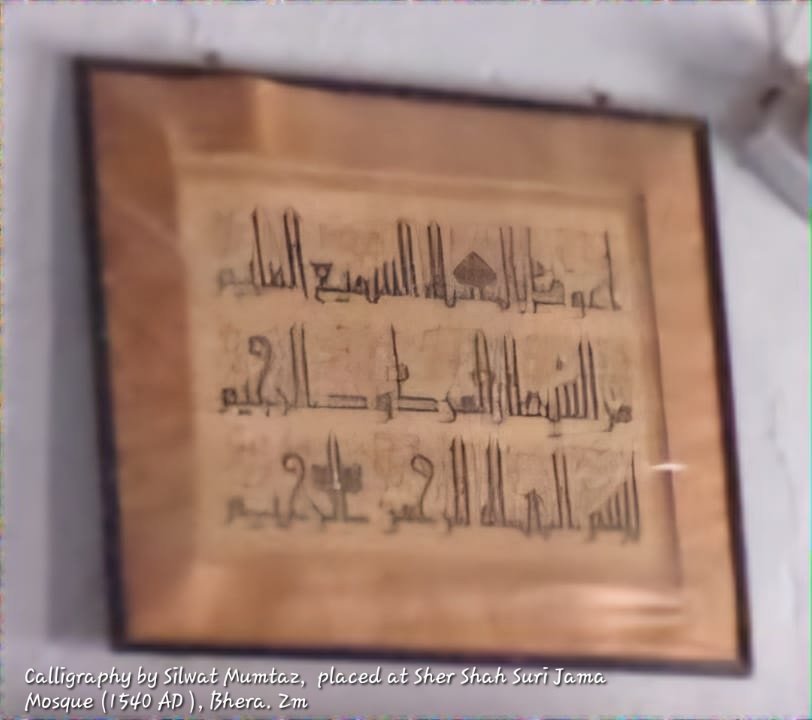 اعوذ بالله السميع العليم
من الشيطان الرجيم
بسم الله الرحمن الرحيم
Calligraphy by Silwat Mumtaz, placed at Sher Shah Suri Jama
Mosque (1540 AD ), Bhera. 2m